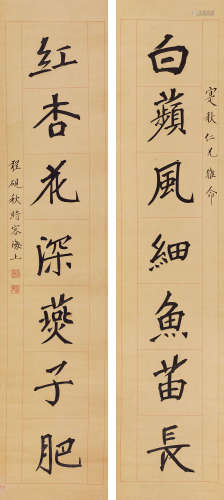 雯秋仁兄雅命
白蘋風細魚苗長
紅杏花深燕子肥
程硯秋時客海上